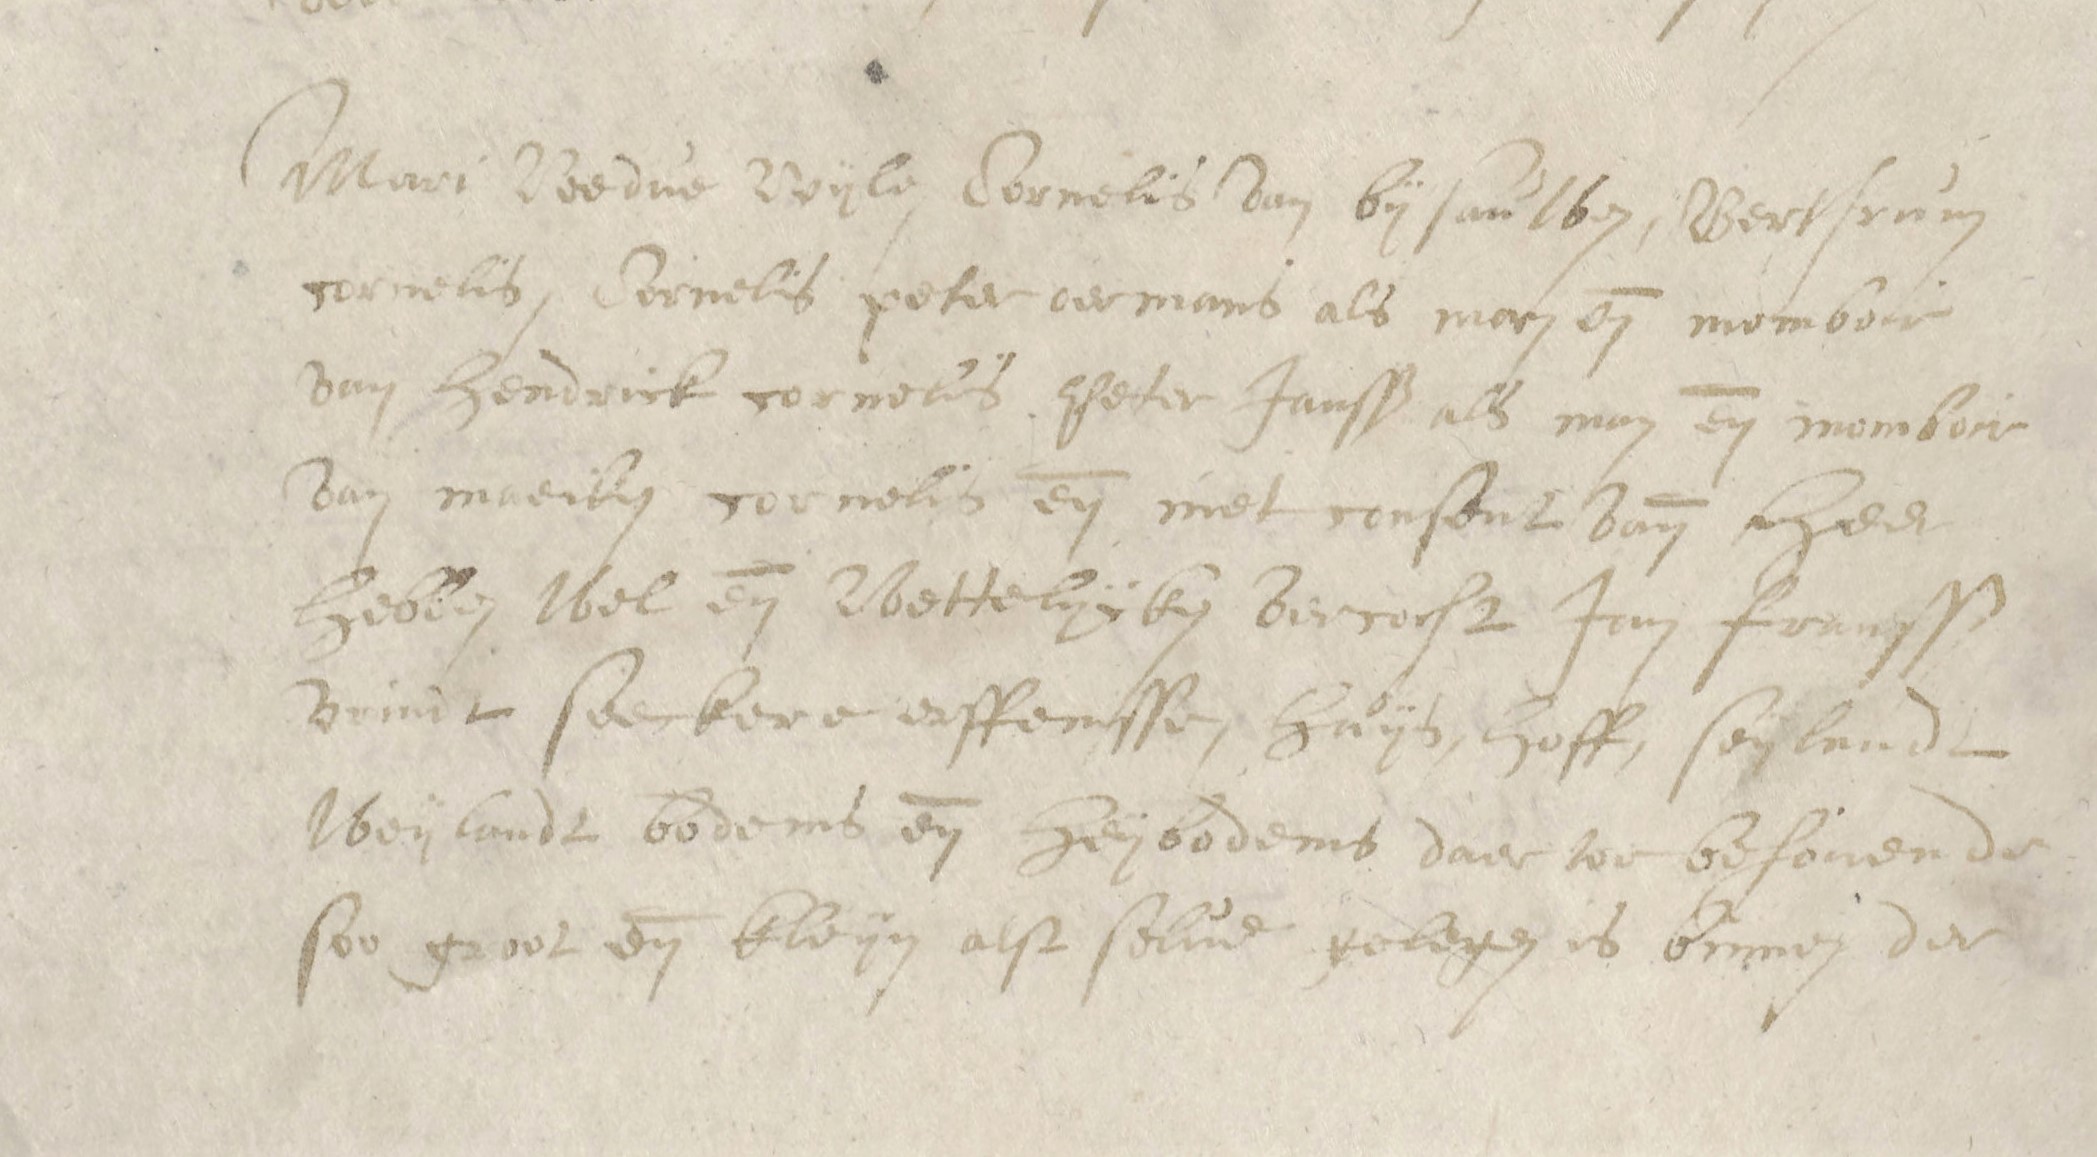 Mari Weedue Wyle, Cornelis van bij
cornelis, Cornelis peter oermans als man en momboir
van hendrick cornelis peter Janss als man en momboir
van maeiken cornelis en met consent van heer
hebben wel en Wettelijken vercocht Jan franss
vrindt seeckere erffenisse, huijs, hoff, seylandt
weijlandt bodems en heijbodems daer toe behoirende
soo groot en kleijn alst selue gelegen is binnen der